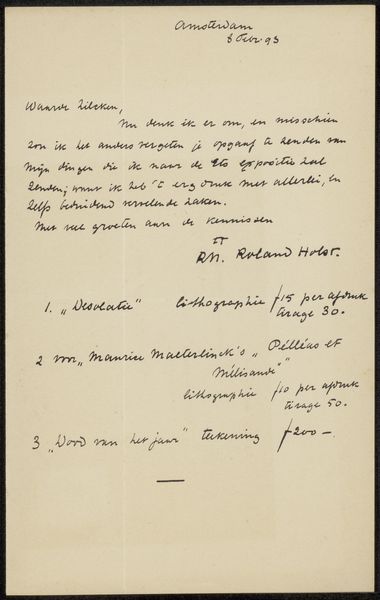 Amsterdam
8 Febr. 93
Waarde Zilcken,
Nu denk ik er om, en misschien
zou ik het anders vergeten je opgaaf te zenden van
mijn dingen die ik naar de Ets expositie zal
zenden; want ik heb 't erg druk met allerlei, en
zelfs bedroevend vervelende zaken.
Met veel groeten aan de kennissen
tt
RN. Roland Holst.
1. „Desolatie" lithographie f 15 per afdruk
tirage 30.
2 voor „Maurice Maeterlinck's „Pélléas et
Mélisande"
lithographie f 10 per afdruk
tirage 50.
3 „Dood van het jaar" teekening f 200 —.